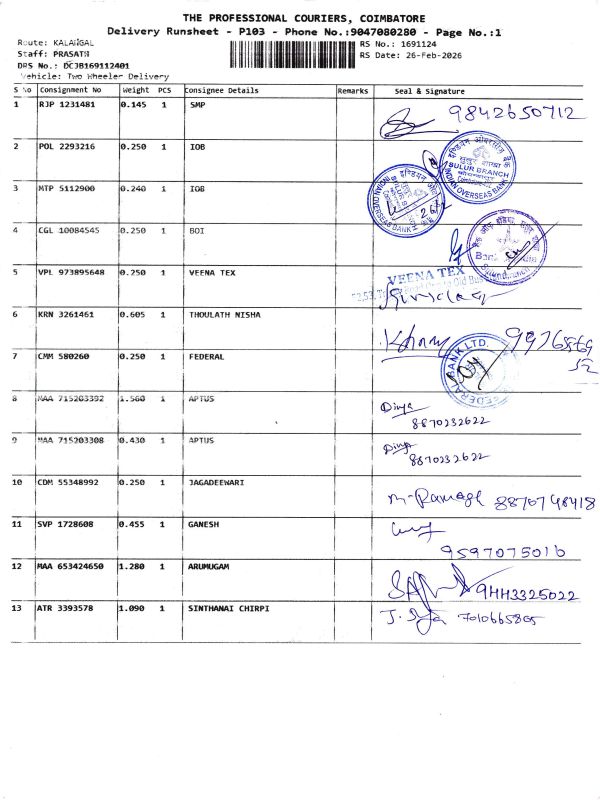 THE PROFESSIONAL COURIERS, COIMBATORE
Delivery Runsheet - P103 - Phone No.:9047080280 - Page No.:1
Route: KALANGAL
Staff: PRASATH
DRS No.: DCJB169112401
Vehicle: Two Wheeler Delivery
RS No.: 1691124
RS Date: 26-Feb-2026
S No Consignment No Weight PCS Consignee Details Remarks Seal & Signature
1 RJP 1231481 0.145 1 SMP 9842650712
2 POL 2293216 0.250 1 IOB
SULUR BRANCH
INDIAN OVERSEAS BANK
3 MTP 5112900 0.240 1 IOB
INDIAN OVERSEAS BANK
4 CGL 10084545 0.250 1 BOI
5 VPL 973895648 0.250 1 VEENA TEX
VEENA TEX
6 KRN 3261461 0.605 1 THOULATH NISHA
7 CMM 580260 0.250 1 FEDERAL
FEDERAL BANK LTD.
8 MAA 715203392 1.560 1 APTUS Divya
8870232622
9 MAA 715203308 0.430 1 APTUS Divya
8870232622
10 CDM 55348992 0.250 1 JAGADEEWARI 8870748418
11 SVP 1728608 0.455 1 GANESH
9597075016
12 MAA 653424650 1.280 1 ARUMUGAM 9443325022
13 ATR 3393578 1.090 1 SINTHANAI CHIRPI 7010665805